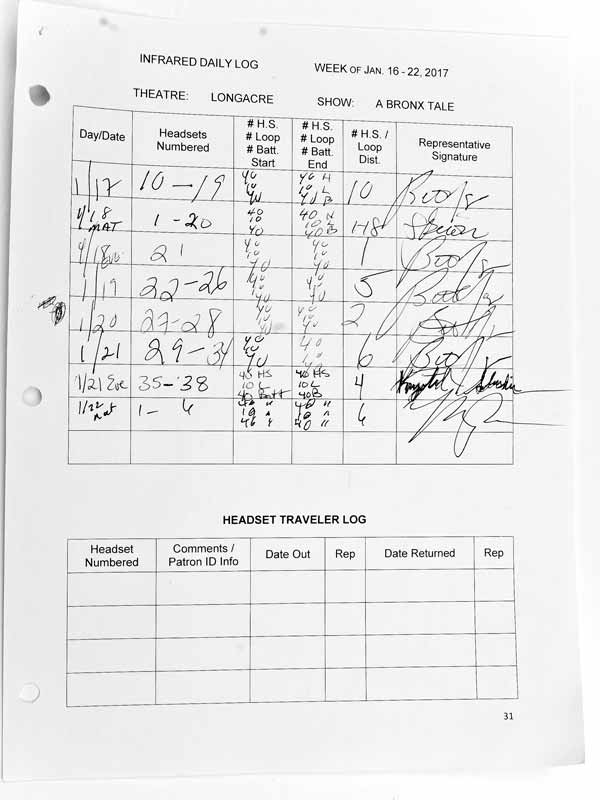 INFRARED DAILY LOG WEEK OF JAN. 16 - 22, 2017
THEATRE: LONGACRE SHOW: A BRONX TALE
Day/Date Headsets Numbered # H.S. # Loop # Batt. Start # H.S. # Loop # Batt. End # H.S. / Loop Dist. Representative Signature
1/17 10-19 40 10 40 40 H 10 L 40 B 10
1/18 MAT 1-20 40 10 40 40 H 10 L 40 B
1/18 Eve 21 40 10 40 40 10 40 1
1/19 22-26 40 10 40 40 10 40 5
1/20 27-28 40 10 40 40 10 40 2
1/21 29-34 40 10 40 40 10 40 6
1/21 Eve 35-38 40 HS 10 L 40 Batt 40 HS 10 L 40 B 4 Krystal
1/22 mat 1-6 40 " 10 " 40 " 40 " 10 " 40 " 6
HEADSET TRAVELER LOG
Headset Numbered Comments / Patron ID Info Date Out Rep Date Returned Rep
31